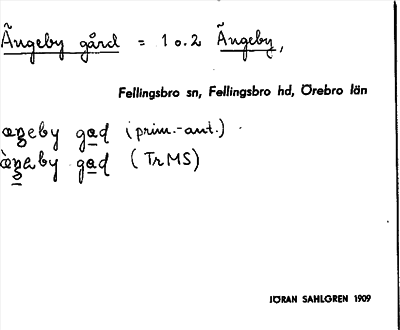 Ängeby gård = 1 o. 2 Ängeby,
Fellingsbro sn, Fellingsbro hd, Örebro län
æŋeby gɑd (prim.-ant.)
æ̀ŋaby gɑd (TrMS)
JÖRAN SAHLGREN 1909